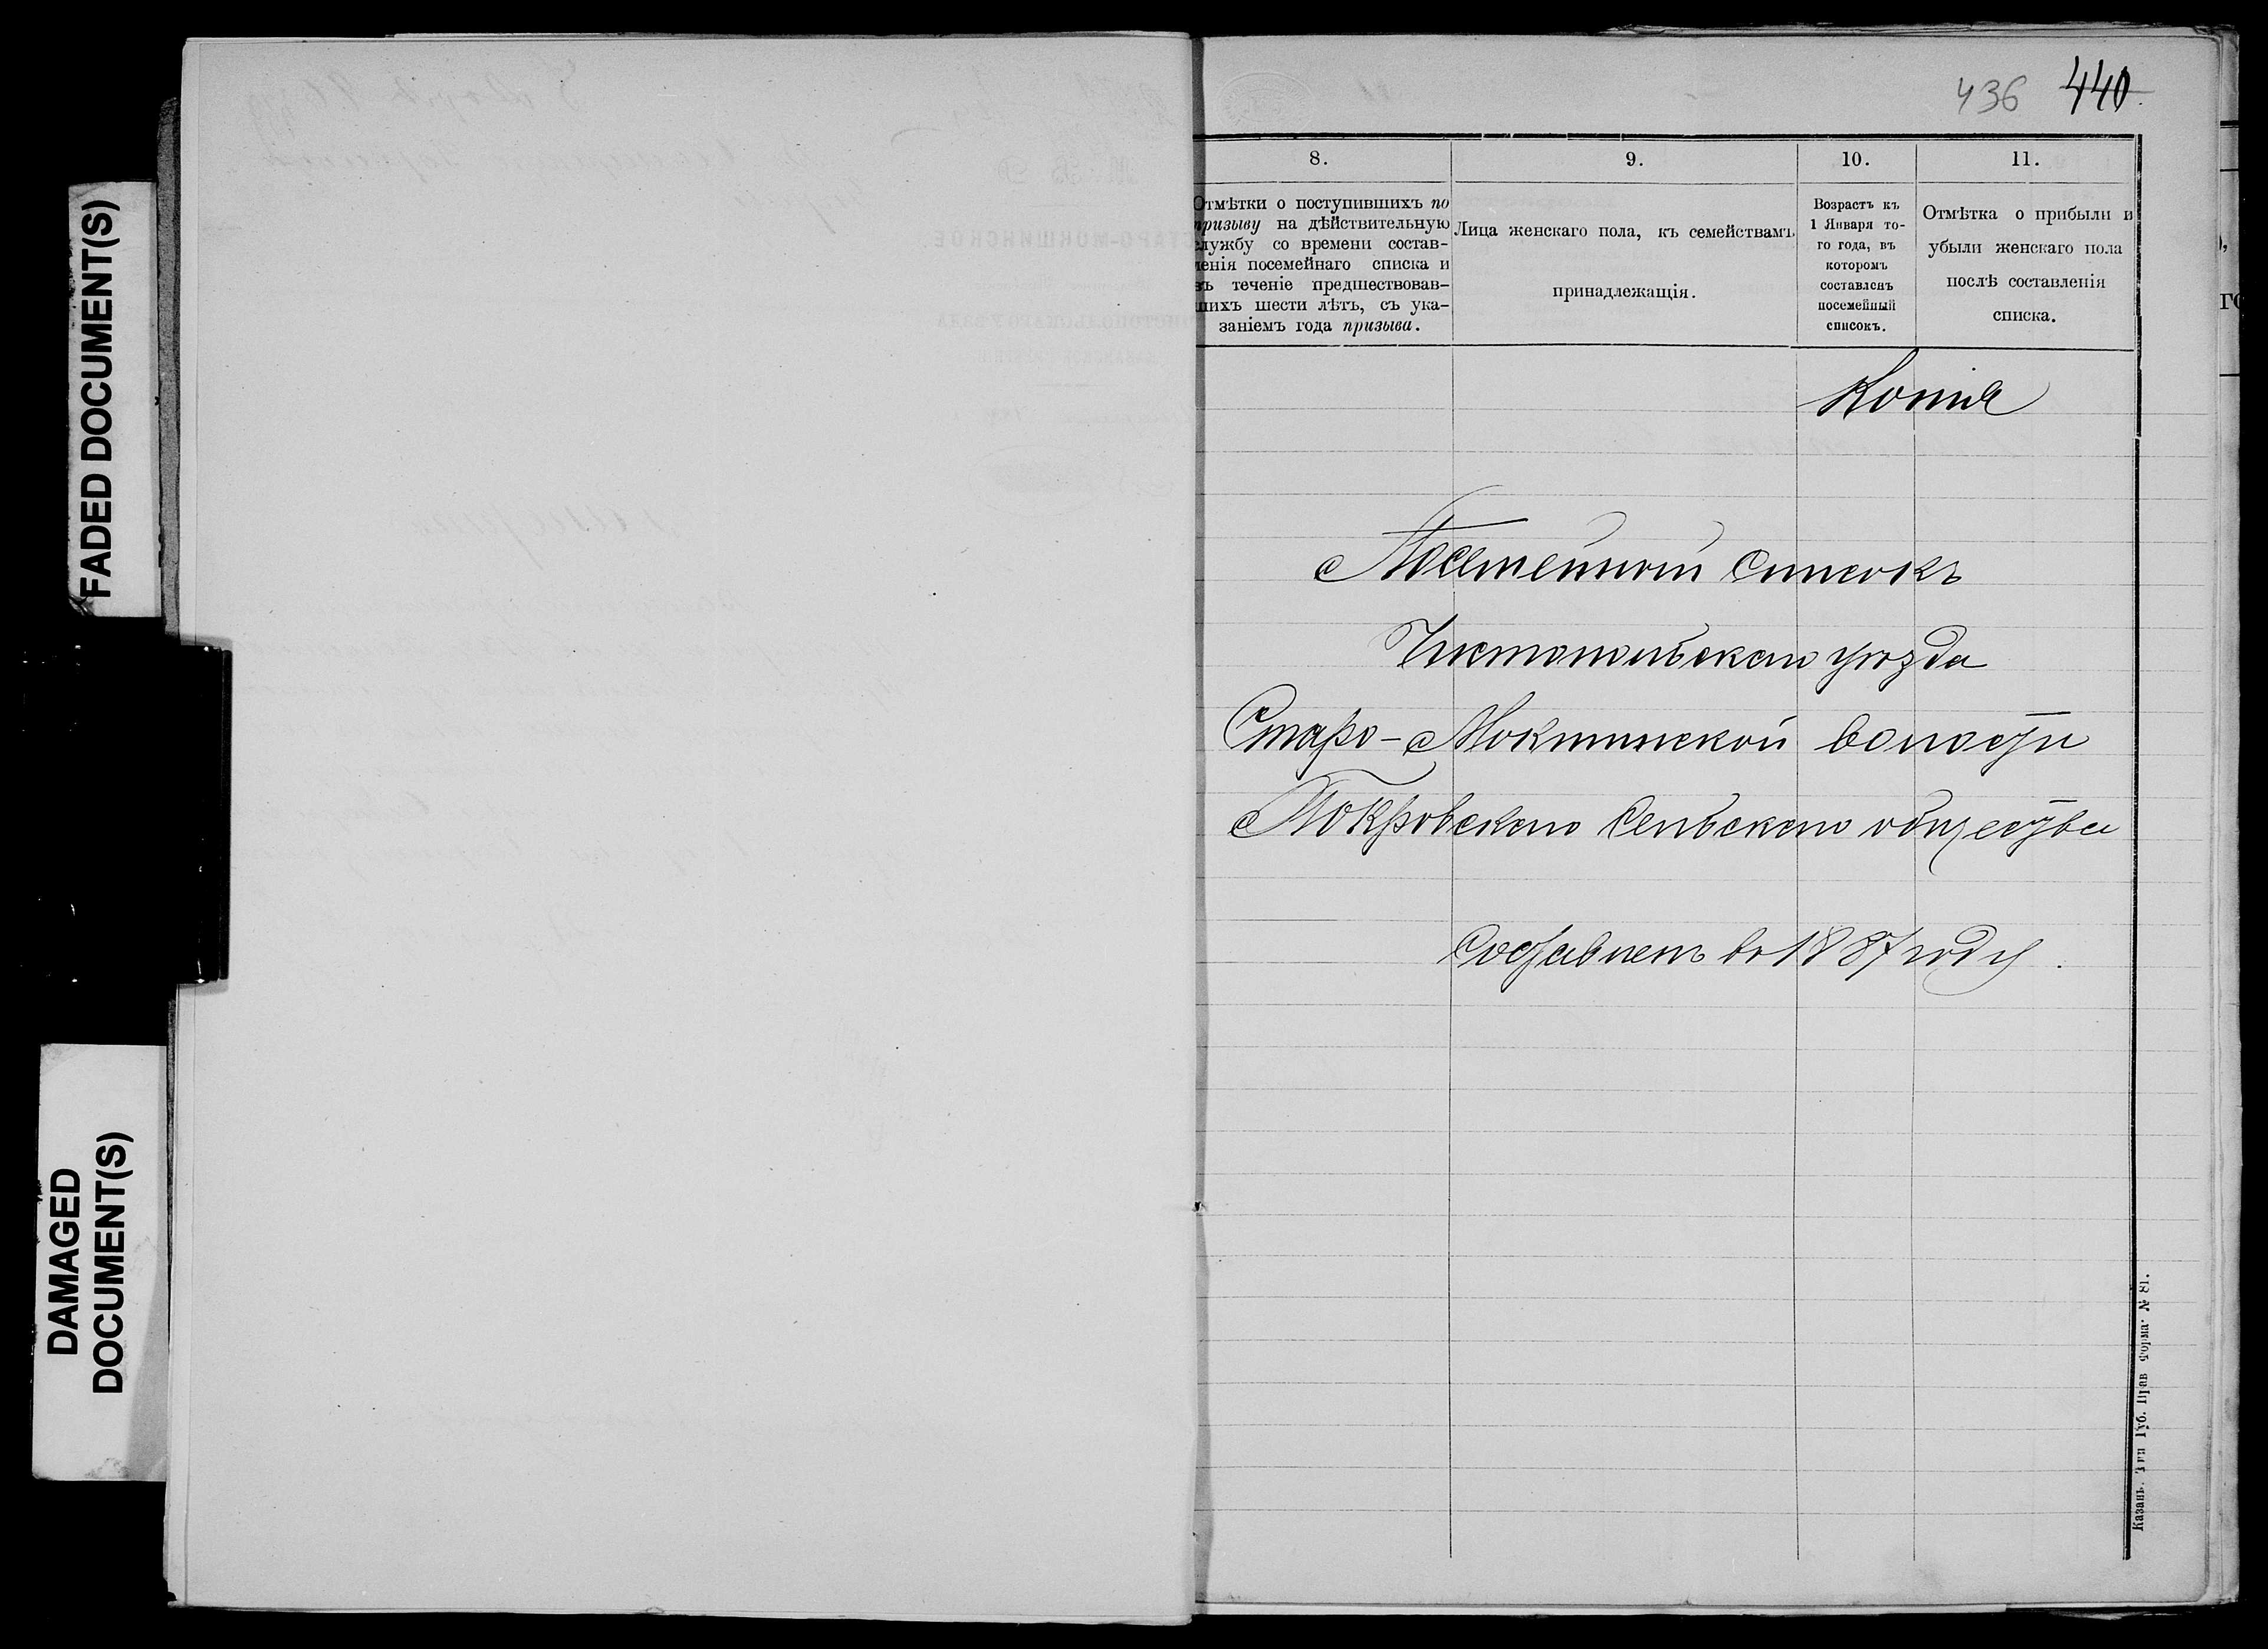 FADED DOCUMENT(S)
DAMAGED
DOCUMENT(S)
436 440
8.
Отмѣтки о поступившихъ по
призыву на дѣйствительную
службу со времени состав-
ленія посемейнаго списка и
въ теченіе предшествовав-
шихъ шести лѣтъ, съ ука-
заніемъ года призыва.
9.
Лица женскаго пола, къ семействамъ
принадлежащія.
10.
Возрастъ къ
1 Января то-
го года, въ
которомъ
составленъ
посемейный
списокъ.
11.
Отмѣтка о прибыли и
убыли женскаго пола
послѣ составленія
списка.
Копія
Посемейный списокъ
Чистопольскаго уѣзда
Старо-Мокшинской волости
Покровскаго сельскаго общества
Составленъ въ 1887 году.
Казань. Тип Губ. Прав Форма № 81.